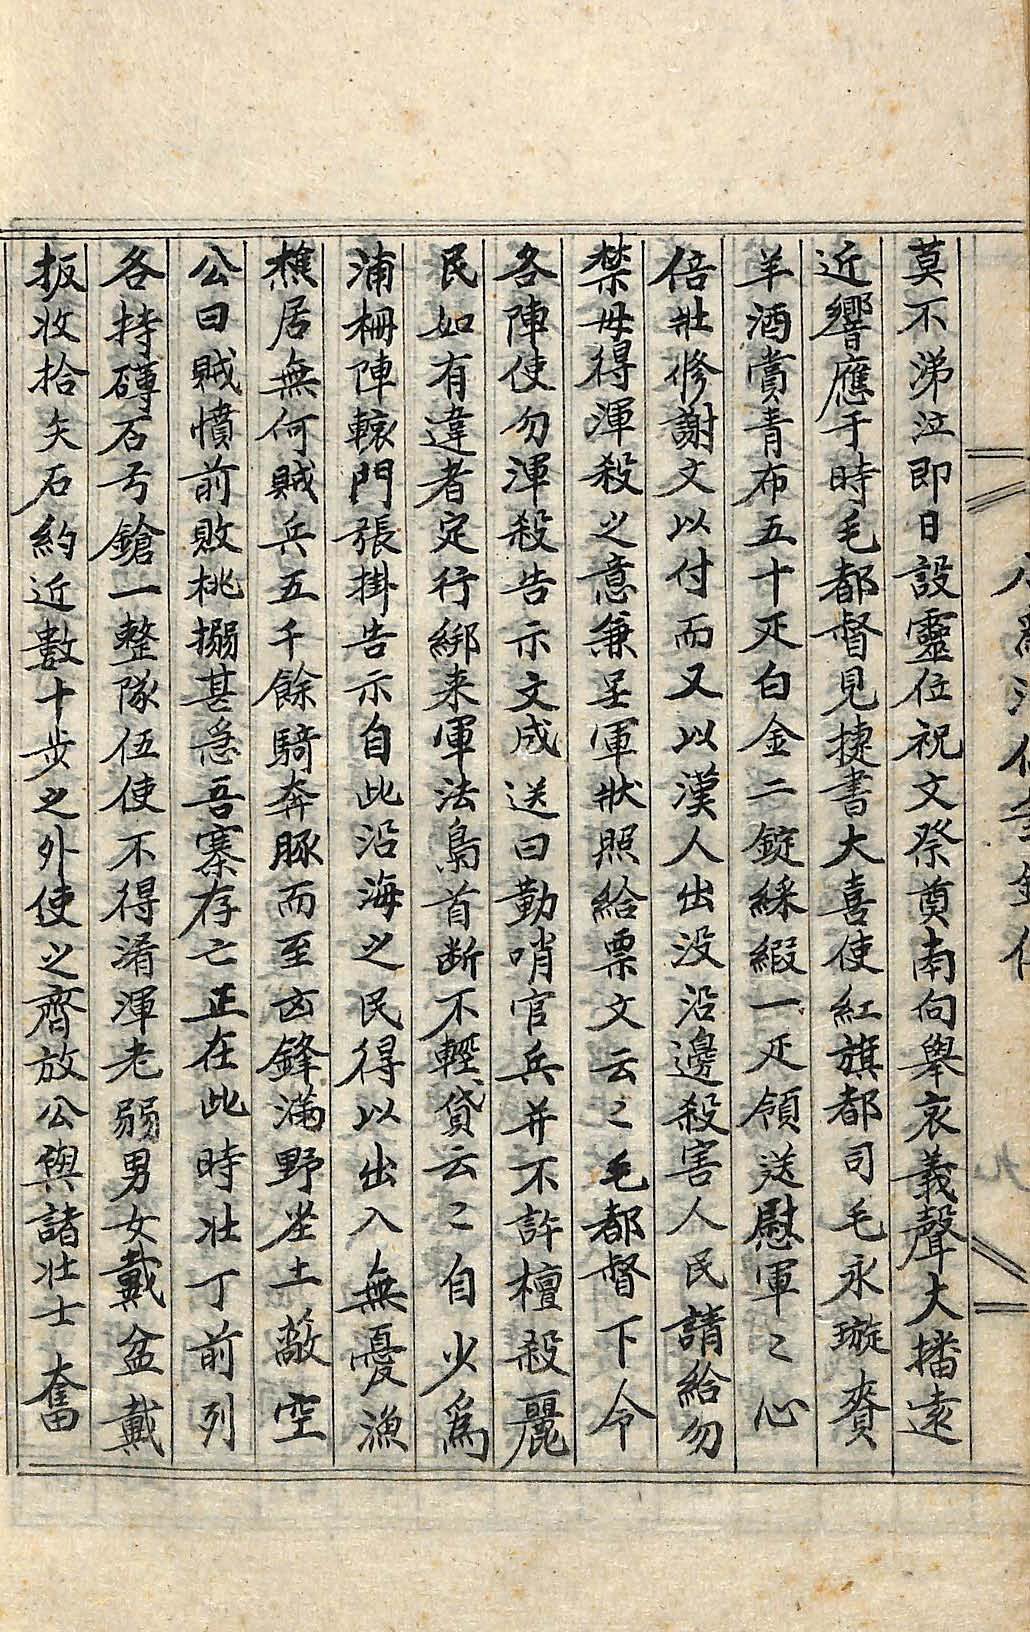 莫不涕泣即日設靈位祝文祭奠南向擧哀義聲大播遠
近響應于時毛都督見捷書大喜使紅旗都司毛永璇賚
羊酒賞靑布五十疋白金二錠綵緞一疋領送慰軍〻心
倍壯修謝文以付而又以漢人出沒沿邊殺害人民請給勿
禁毋得渾殺之意兼呈軍狀照給票文云〻毛都督下令
各陣使勿渾殺告示文成送曰勤哨官兵并不許檀殺麗
民如有違者定行綁来軍法梟首断不輕貸云〻自少爲
浦柵陣轅門張掛告示自此沿海之民得以出入無憂漁
樵居無何賊兵五千餘騎奔豚而至凶鋒滿野坐土敵空
公曰賊憤前敗桃搦甚急吾寨存亡正在此時壯丁前列
各持磚石弓鎗一整隊伍使不得淆渾老弱男女戴盆戴
扳收拾矢石約近數十步之外使之齊放公與諸壯士奮